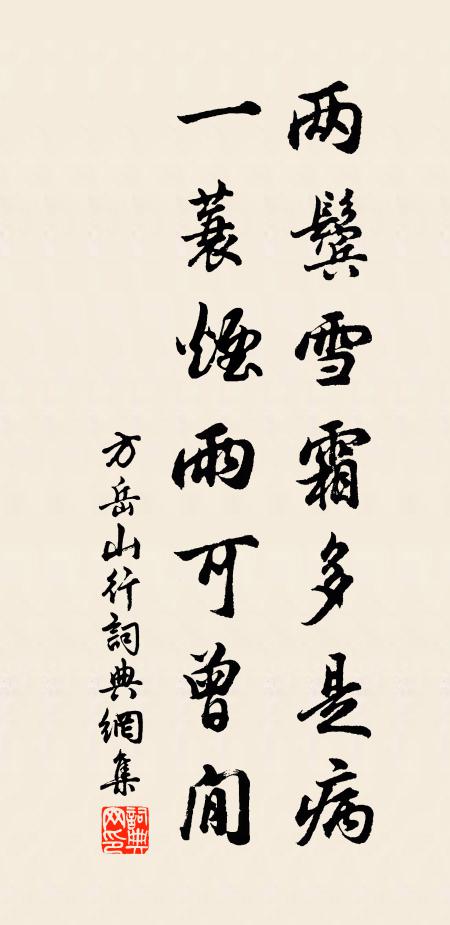 两鬓雪霜多是病
一蓑煙雨可曾閒
方岳山行詞典網集
詞典网印